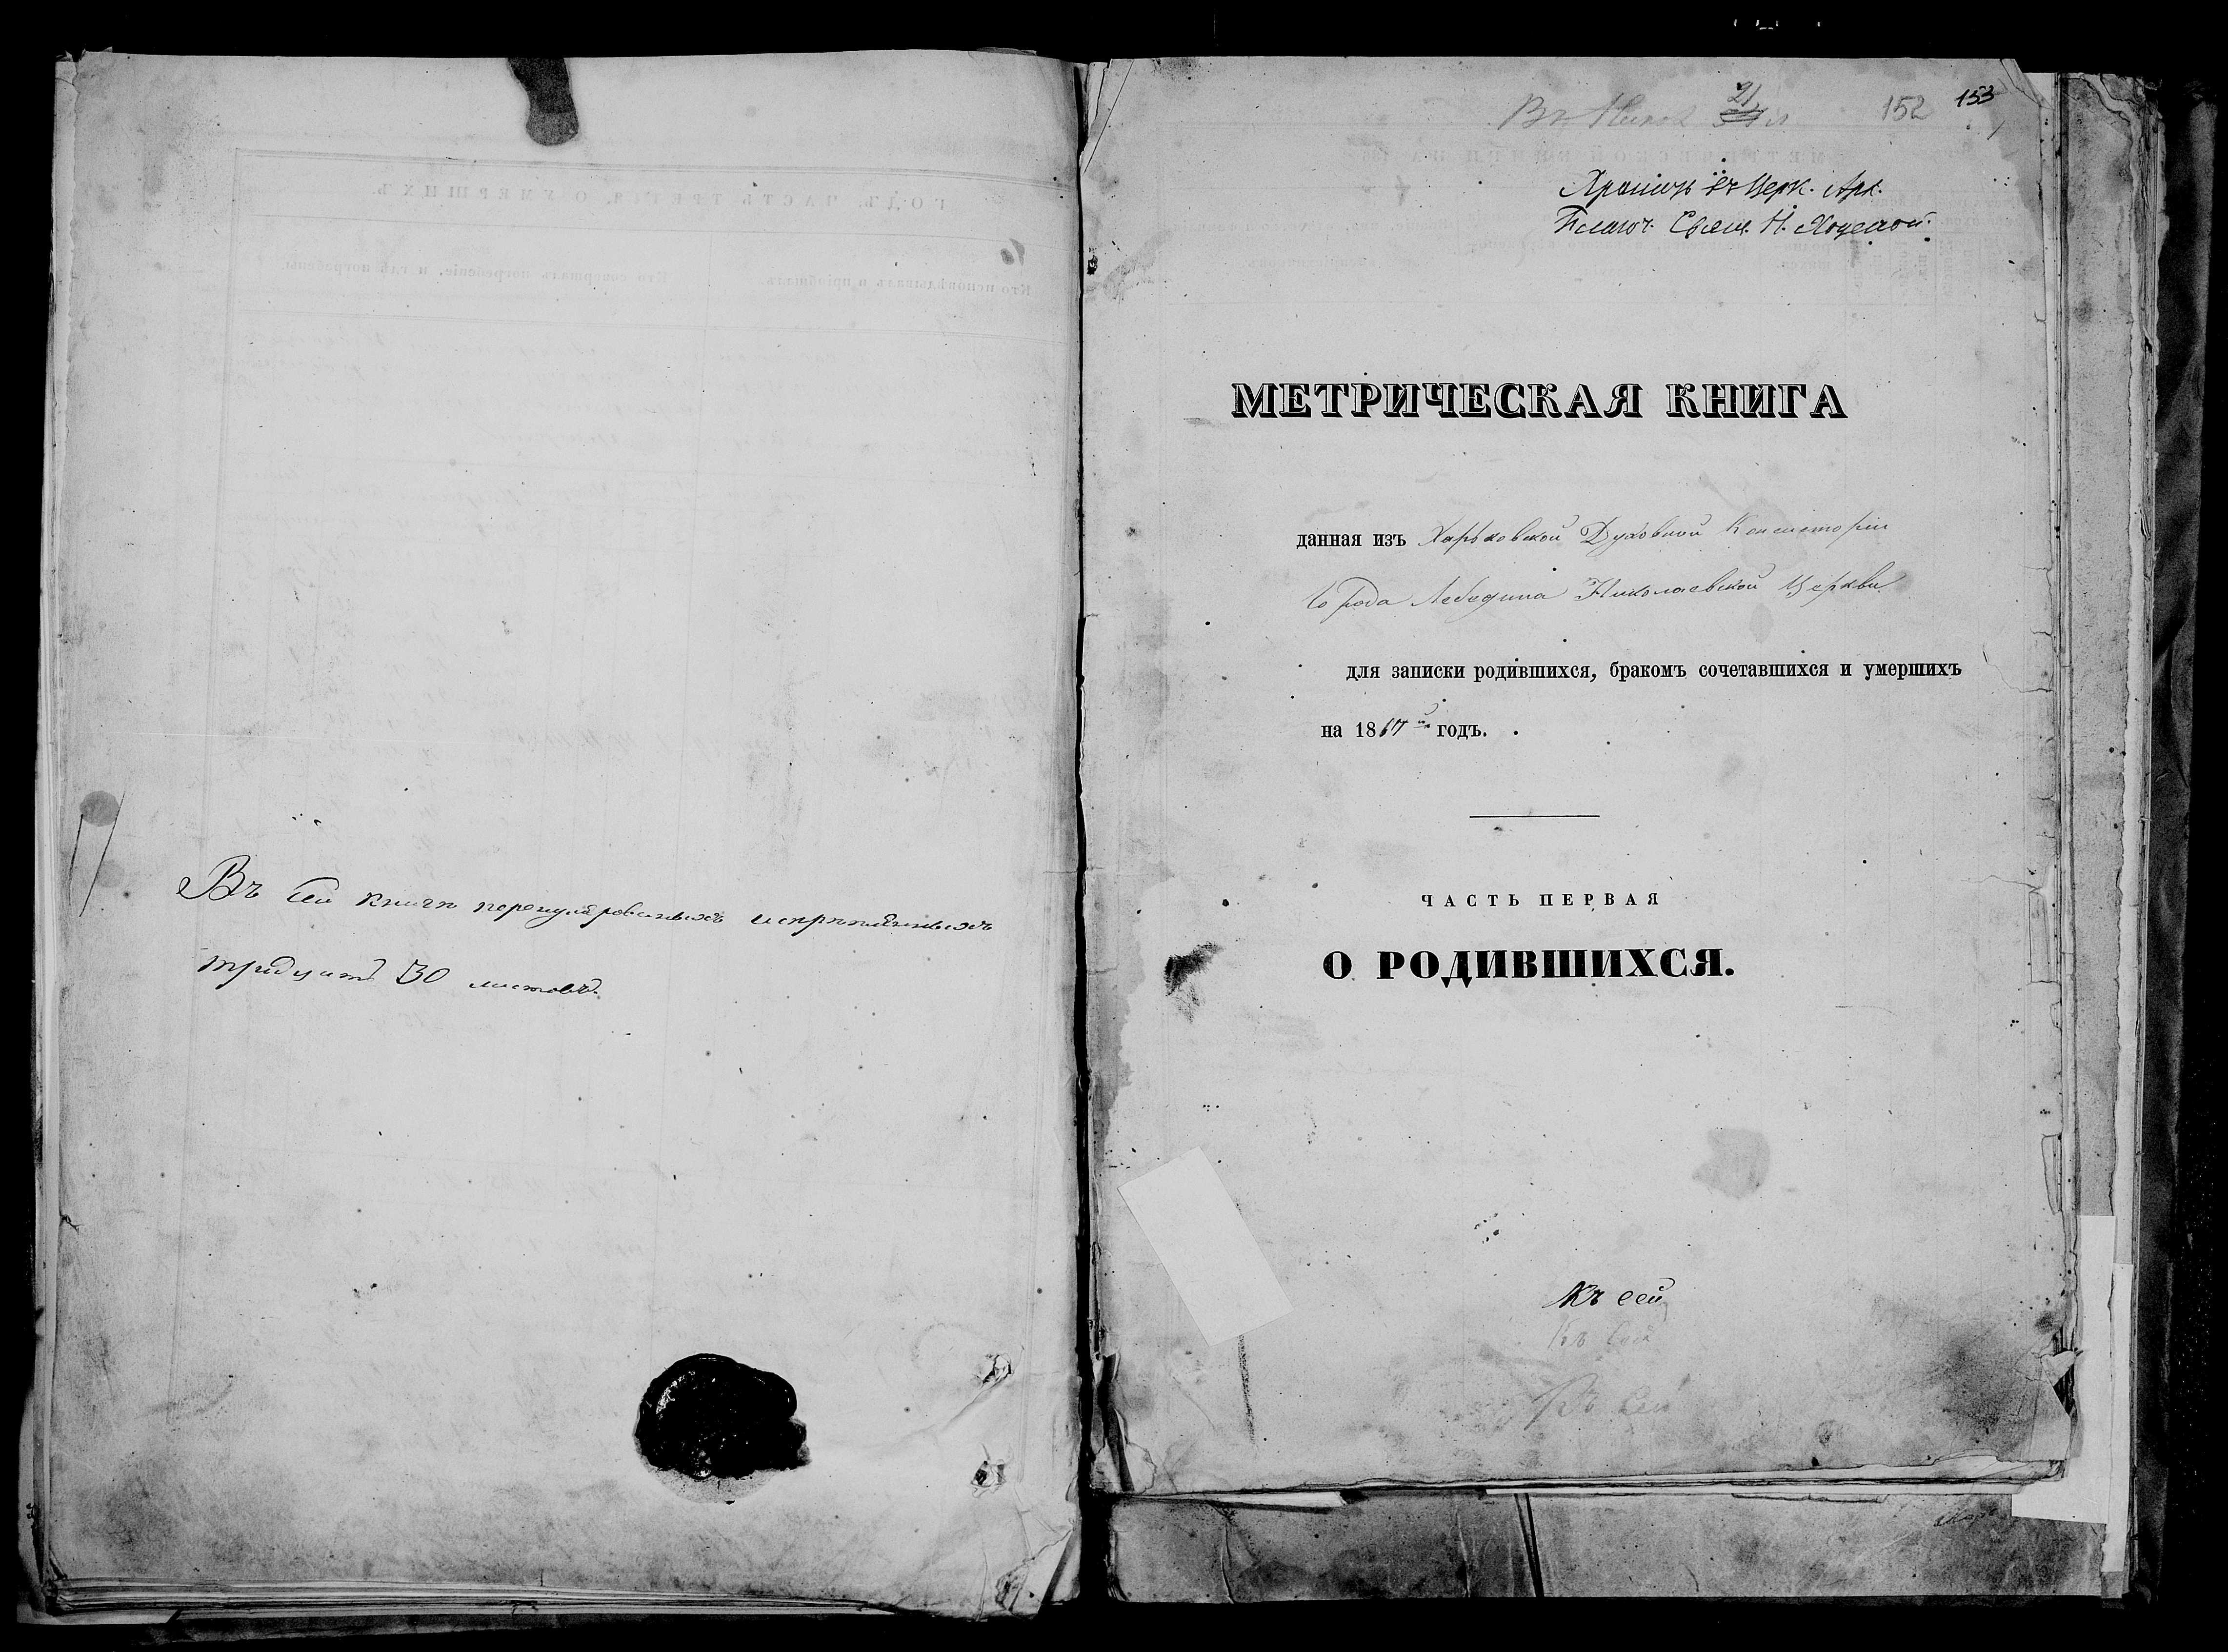 Въ сей книгѣ перенумерованныхъ искрѣпленныхъ
тридцать 30 листовъ.
21
152 153
Хранить въ Церк. Арх.
Благоч. Свящ. Н.
МЕТРИЧЕСКАЯ КНИГА
данная изъ Харьковской Духовной Консисторіи
Города Лебедина Николаевской Церкви
для записки родившихся, бракомъ сочетавшихся и умершихъ
на 1867й годъ.
ЧАСТЬ ПЕРВАЯ
О РОДИВШИХСЯ.
Къ сей
Къ сей
Къ сей